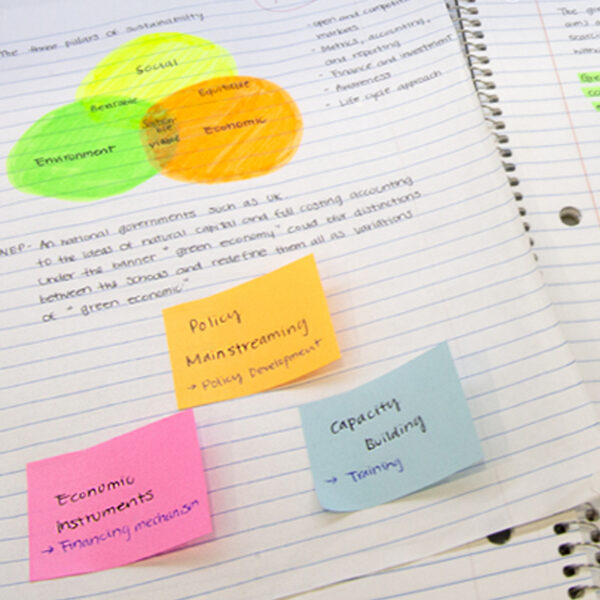 The three pillars of sustainability
Social
Bearable
Equitable
Economic
Environment
viable
- open and competi
markets
- Metrics, accounting,
and reporting
- Finance and investment
- Awareness
- Life cycle approach
NEP - An national governments such as UK
to the ideas of natural capital and full costing accounting
under the banner "green economy" could blur distinctions
between the schools and redefine them all as variations
of "green economic"
Policy
Mainstreaming
→ Policy Development
Capacity
Building
→ Training
Economic
Instruments
→ Financing mechanism